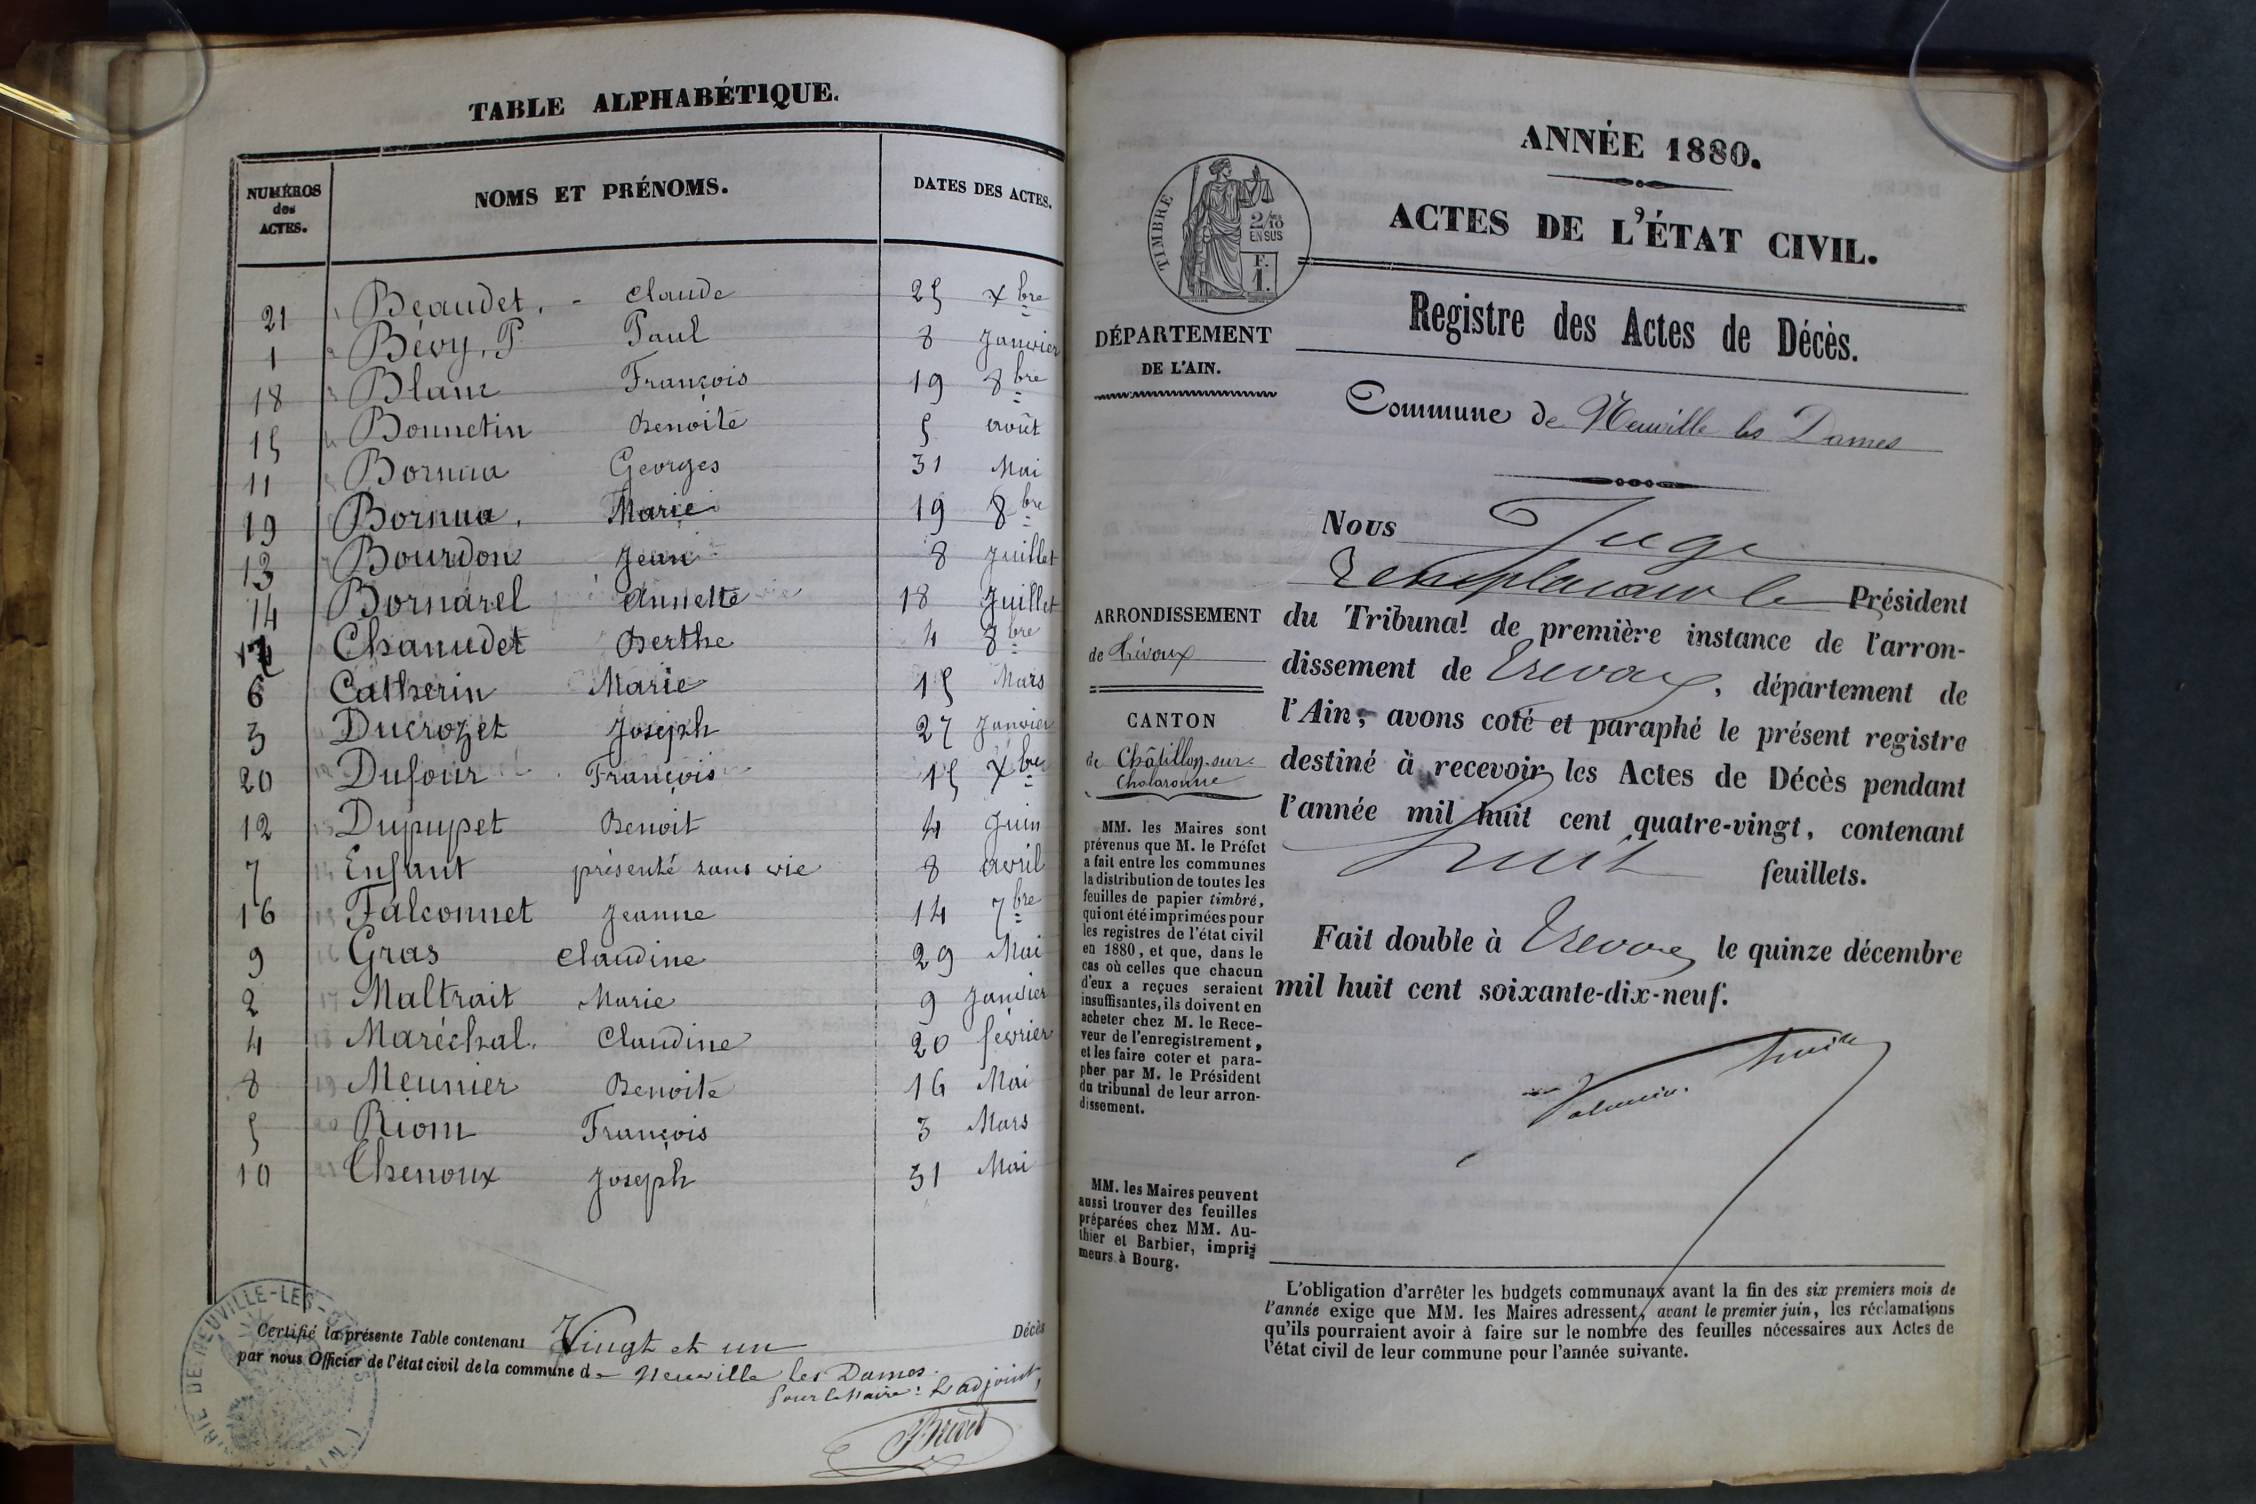 TABLE ALPHABÉTIQUE.
NUMÉROS des ACTES. NOMS ET PRÉNOMS. DATES DES ACTES.
21 Beaudet, - Claude 25 Xbre
1 Bévy, P Paul 8 Janvier
18 Blanc François 19 8bre
15 Bonnetin Benoite 5 août
11 Bornua Georges 31 Mai
19 Bornua, Marie 19 8bre
13 Bourdon Jean 8 Juillet
14 Bornarel Annette 18 Juillet
17 Chanudet Berthe 4 8bre
6 Catherin Marie 15 Mars
3 Ducrozet Joseph 27 Janvier
20 Dufour François 15 Xbre
12 Dupupet Benoit 4 Juin
7 Enfant présenté sans vie 8 avril
16 Falconnet Jeanne 14 7bre
9 Gras Claudine 29 Mai
2 Maltrait Marie 9 Janvier
4 Maréchal. Claudine 20 février
8 Meunier Benoite 16 Mai
5 Riom François 3 Mars
10 Thenoux Joseph 31 Mai
Certifié la présente Table contenant Vingt et un Décès
par nous Officier de l'état civil de la commune de Neuville les Dames.
Pour le Maire: L'adjoint,
MAIRIE DE NEUVILLE-LES-DAMES (AIN)
ANNÉE 1880.
ACTES DE L'ÉTAT CIVIL.
TIMBRE
2/10 EN SUS
F. 1.
Registre des Actes de Décès.
DÉPARTEMENT
DE L'AIN.
Commune de Neuville les Dames
Nous Juge
Remplaçant le Président
du Tribunal de première instance de l'arron-
dissement de Trevoux, département de
l'Ain, avons coté et paraphé le présent registre
destiné à recevoir les Actes de Décès pendant
l'année mil huit cent quatre-vingt, contenant
huit feuillets.
Fait double à Trevoux le quinze décembre
mil huit cent soixante-dix-neuf.
ARRONDISSEMENT
de Trévoux
CANTON
de Châtillon-sur-
Chalaronne
MM. les Maires sont
prévenus que M. le Préfet
a fait entre les communes
la distribution de toutes les
feuilles de papier timbré,
qui ont été imprimées pour
les registres de l'état civil
en 1880, et que, dans le
cas où celles que chacun
d'eux a reçues seraient
insuffisantes, ils doivent en
acheter chez M. le Rece-
veur de l'enregistrement,
et les faire coter et para-
pher par M. le Président
du tribunal de leur arron-
dissement.
MM. les Maires peuvent
aussi trouver des feuilles
préparées chez MM. Au-
thier et Barbier, impri-
meurs à Bourg.
L'obligation d'arrêter les budgets communaux avant la fin des six premiers mois de
l'année exige que MM. les Maires adressent, avant le premier juin, les réclamations
qu'ils pourraient avoir à faire sur le nombre des feuilles nécessaires aux Actes de
l'état civil de leur commune pour l'année suivante.